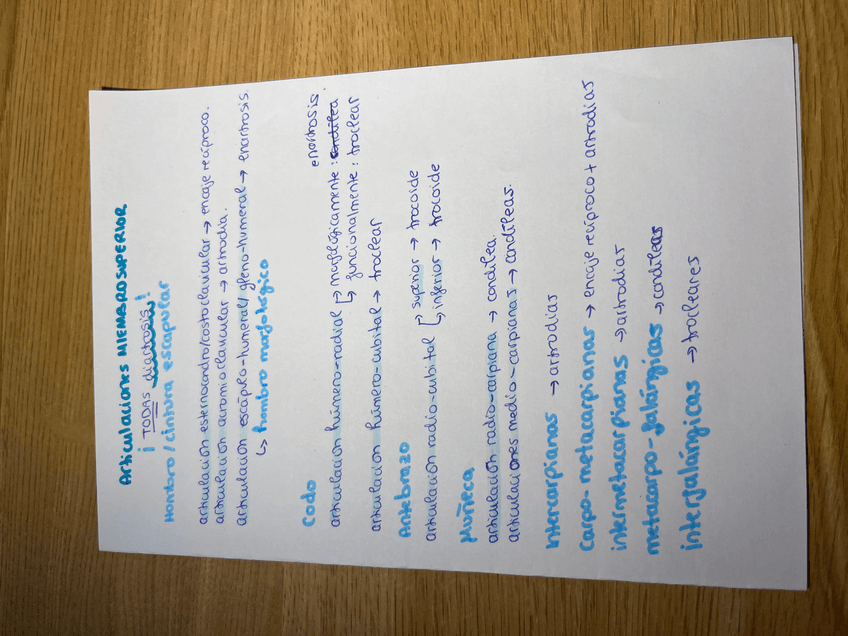 Articulaciones MIEMBRO SUPERIOR
¡ TODAS diartrosis !
Hombro/cintura escapular
articulación esternocondro/costoclavicular → encaje recíproco.
articulación acromioclavicular → artrodia.
articulación escápulo-humeral/gleno-humeral → enartrosis.
↳ hombro morfológico
Codo
enartrosis.
articulación húmero-radial ↱ morfológicamente : condílea
↳ funcionalmente : troclear
articulación húmero-cubital → troclear
Antebrazo
articulación radio-cubital ↱ superior → trocoide
↳ inferior → trocoide
Muñeca
articulación radio-carpiana → condílea.
articulaciones medio-carpianas → condíleas.
Intercarpianas → artrodias
Carpo-metacarpianas → encaje recíproco + artrodias
intermetacarpianas → artrodias
metacarpo-falángicas → condíleas
interfalángicas → trocleares